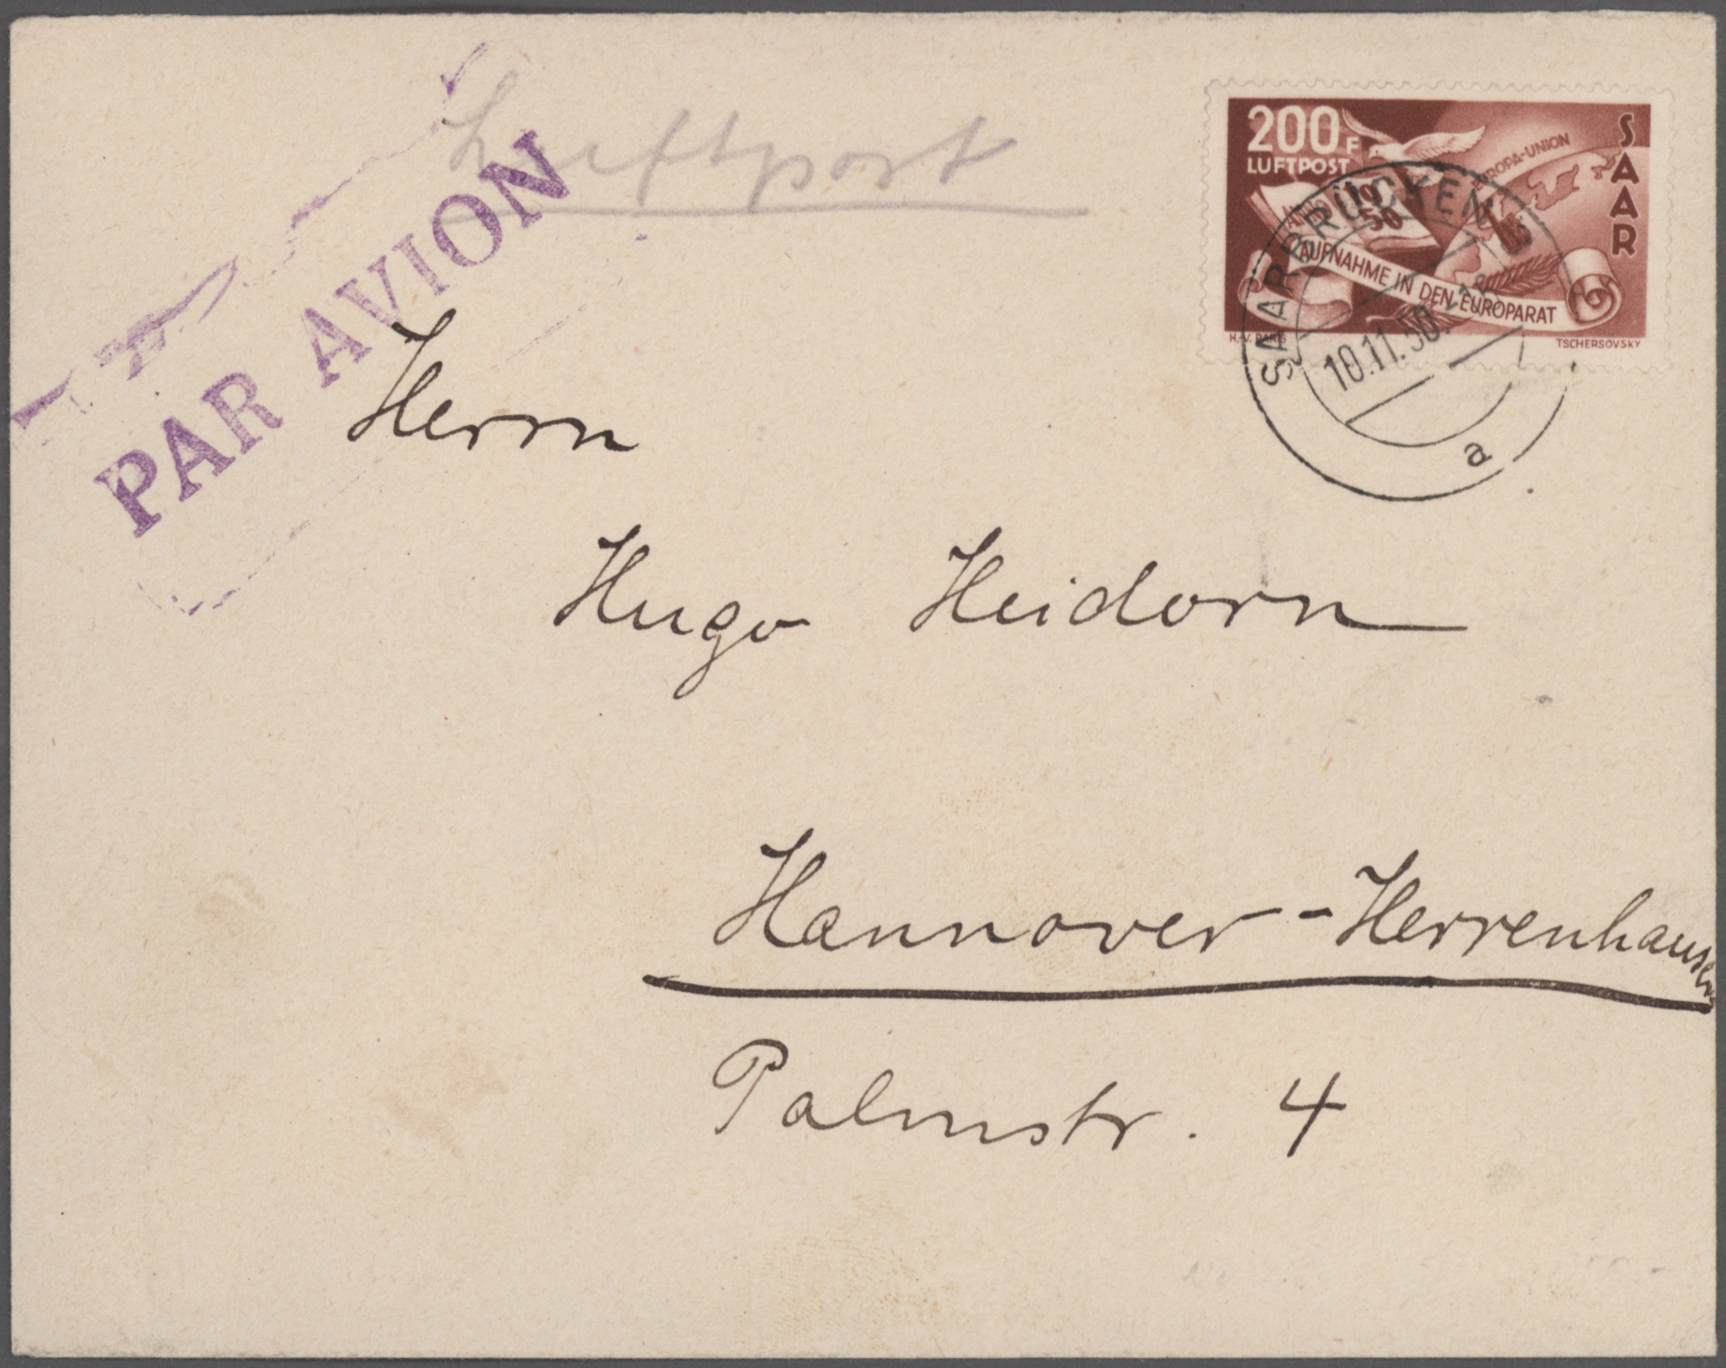 Luftpost
PAR AVION
200 F
LUFTPOST
SAAR
EUROPA-UNION
ANNO 1950
AUFNAHME IN DEN EUROPARAT
H.-V. PARIS
TSCHERSOVSKY
SAARBRÜCKEN
10.11.50.
a
Herrn
Hugo Heidorn
Hannover-Herrenhausen
Palmstr. 4